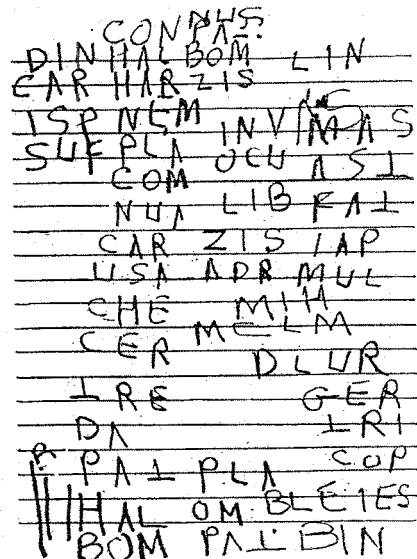 CONNUS.
PAI.
DIN HAL BOM LIN
CAR HAR ZIS
ISP NEM INV MAS
SUF PLA OCU ASI
COM
NUA LIB FAI
CAR ZIS IAP
USA ADR MUL
CHE MIH
CER MELM
DLUR
IRE GER
DA IRI
PAI PLA COP
HAL OM BLEIES
BOM PAI BIN